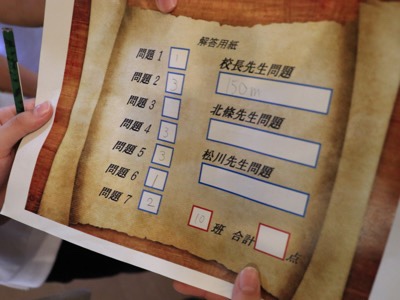 解答用紙
問題1 1
問題2 3
問題3
問題4 3
問題5 3
問題6 1
問題7 2
校長先生問題
150m
北條先生問題
松川先生問題
10班 合計 点